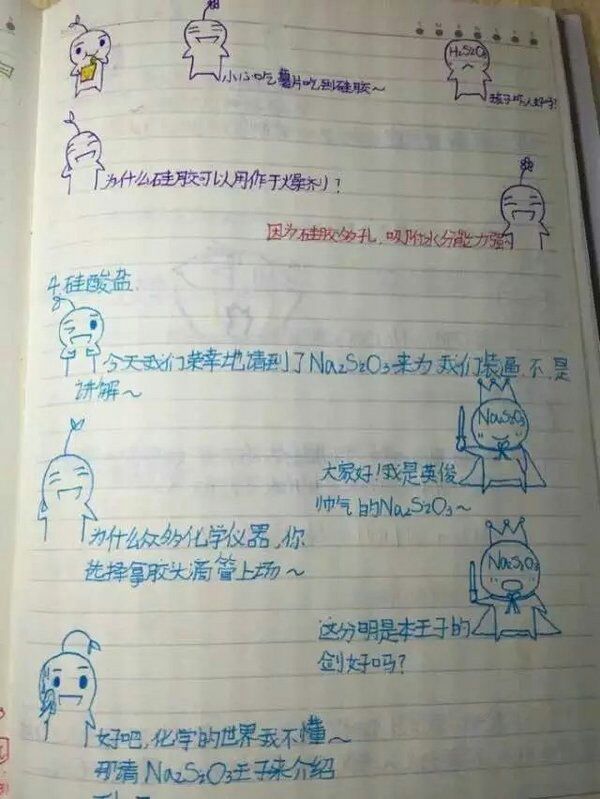 H₂S₂O₃
小心吃薯片吃到硅胶~
为什么硅胶可以用作干燥剂?
因为硅胶多孔,吸附水分能力强
4.硅酸盐
今天我们荣幸地请到了Na₂S₂O₃来为我们装逼,不,是
讲解~
Na₂S₂O₃
大家好!我是英俊
帅气的Na₂S₂O₃~
为什么众多化学仪器,你
选择拿胶头滴管上场~
Na₂S₂O₃
这分明是本王子的
剑好吗?
好吧,化学的世界我不懂~
那请Na₂S₂O₃王子来介绍